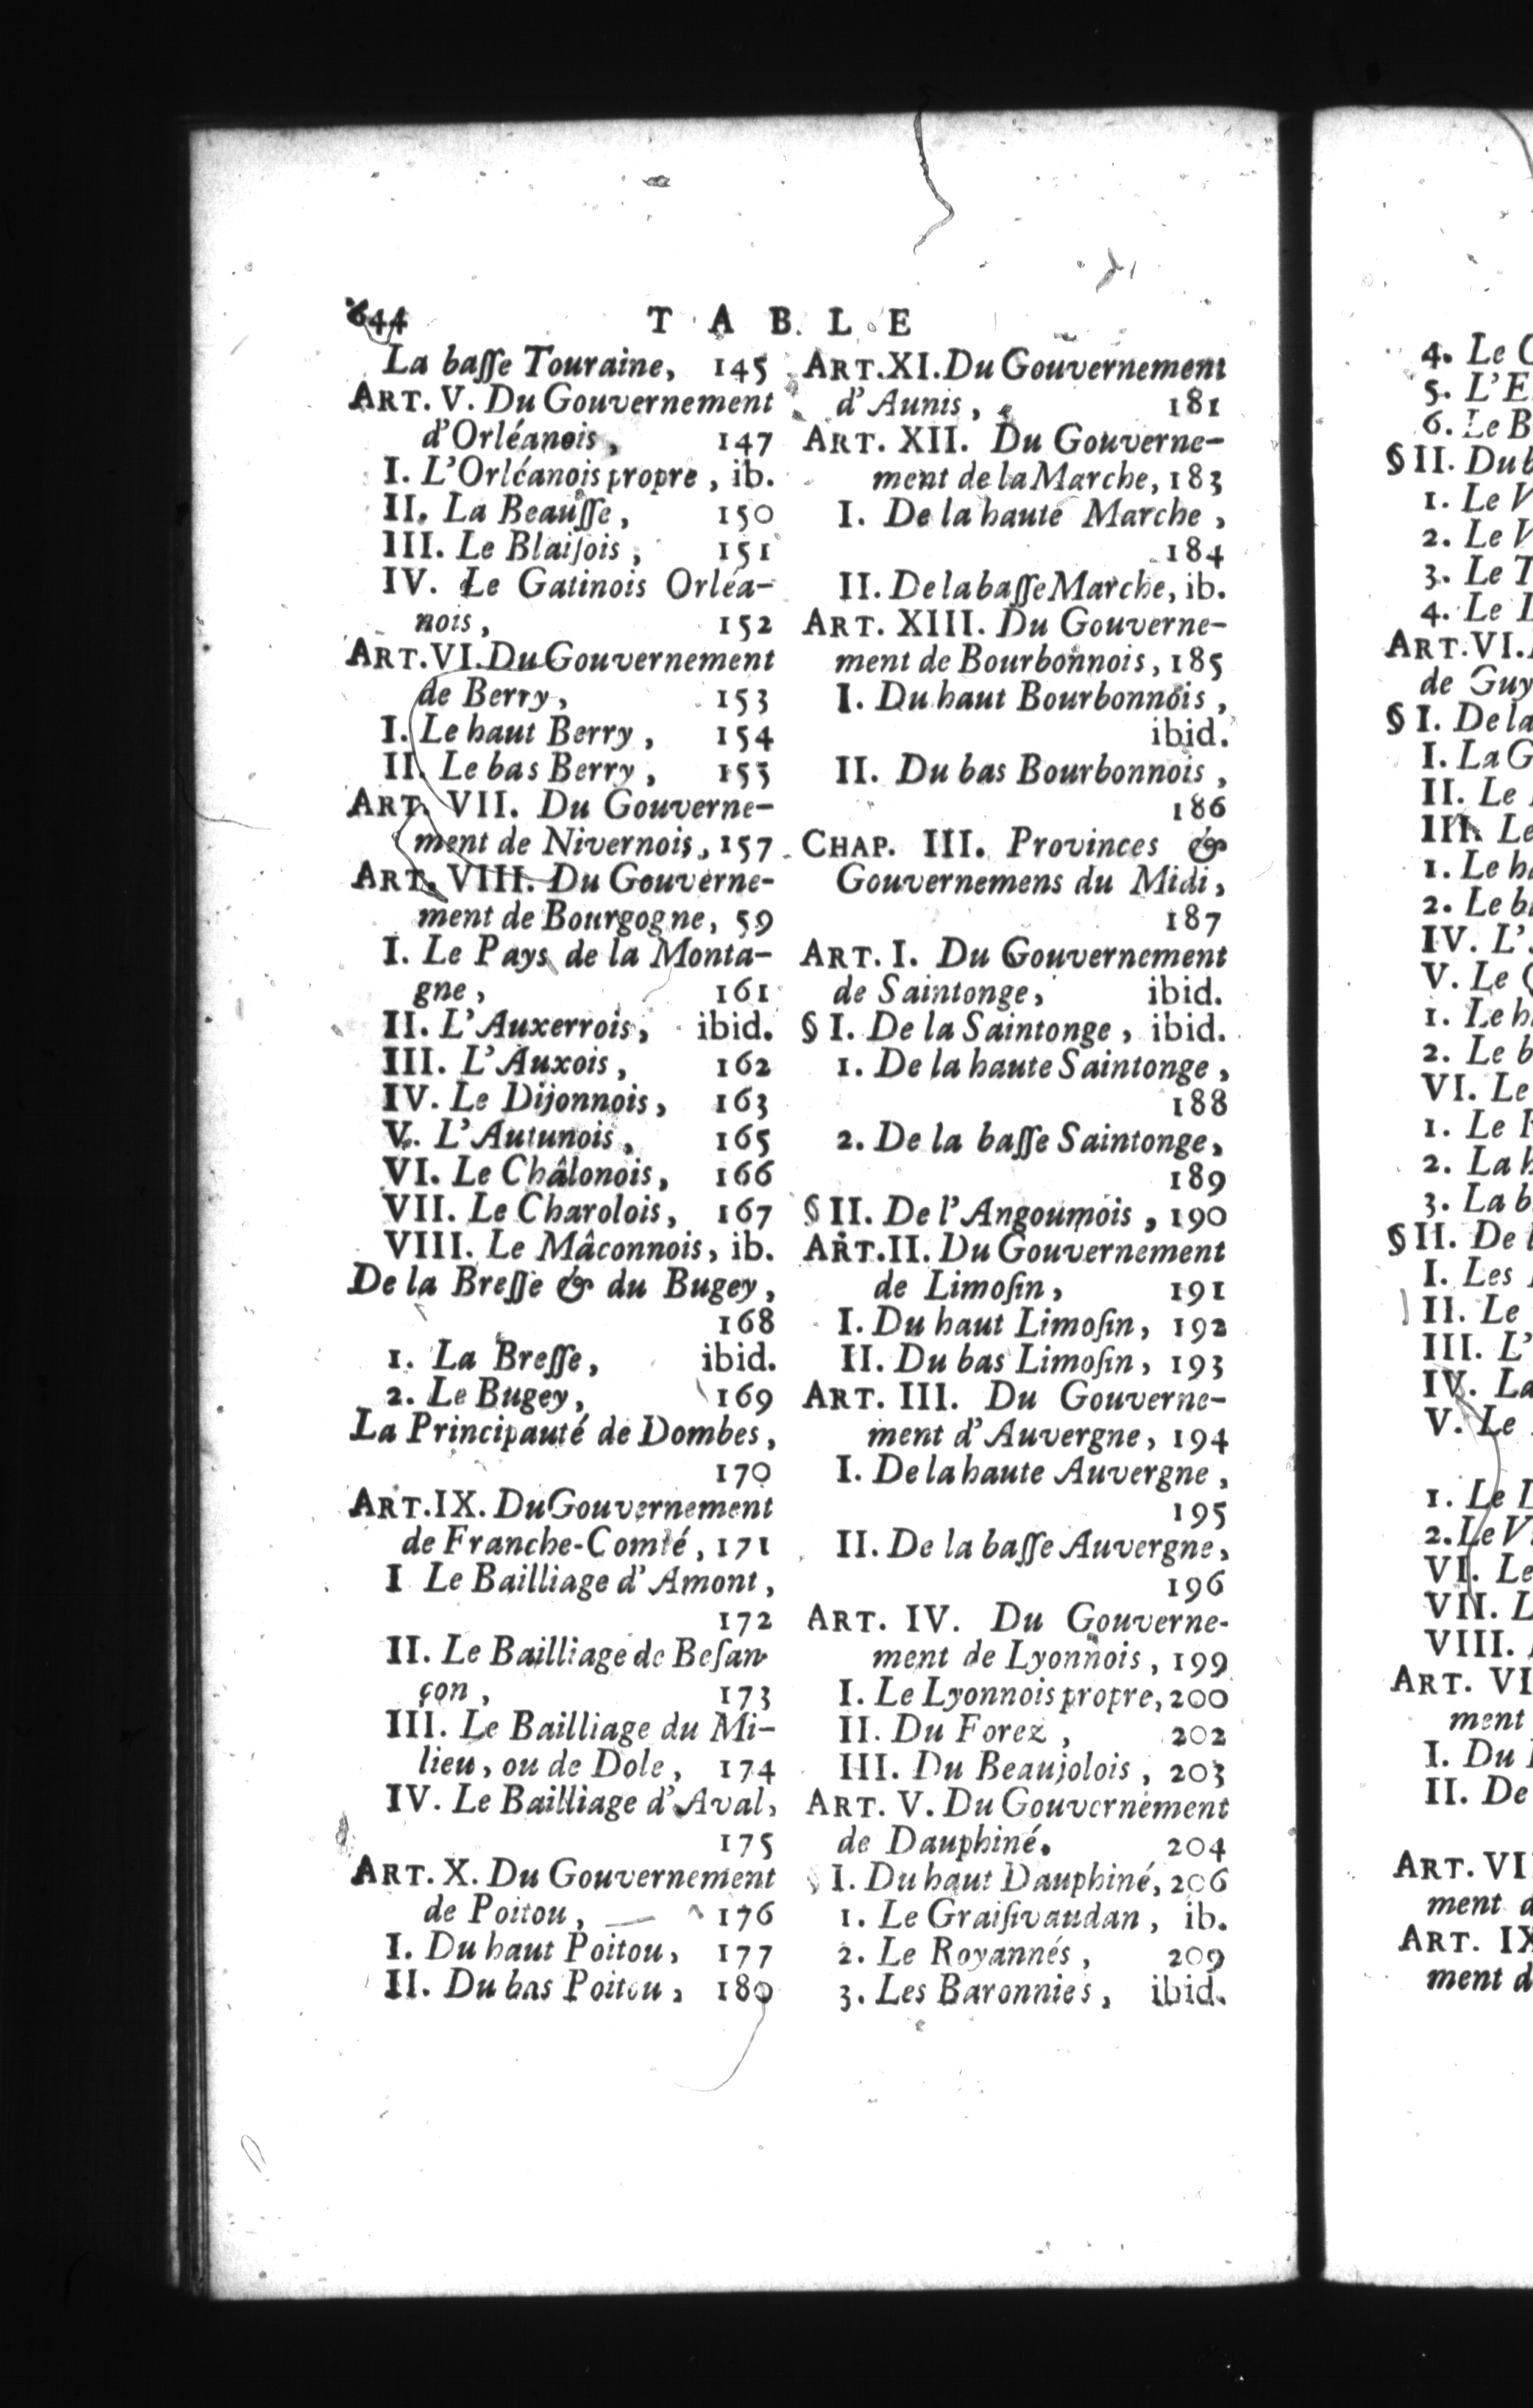 644 TABLE
La baſſe Touraine, 145
ART. V. Du Gouvernement
d'Orléanois, 147
I. L'Orléanois propre, ib.
II. La Beauſſe, 150
III. Le Blaiſois, 151
IV. Le Gatinois Orléa-
nois, 152
ART. VI. Du Gouvernement
de Berry, 153
I. Le haut Berry, 154
II. Le bas Berry, 155
ART. VII. Du Gouverne-
ment de Nivernois, 157
ART. VIII. Du Gouverne-
ment de Bourgogne, 59
I. Le Pays de la Monta-
gne, 161
II. L'Auxerrois, ibid.
III. L'Auxois, 162
IV. Le Dijonnois, 163
V. L'Autunois, 165
VI. Le Châlonois, 166
VII. Le Charolois, 167
VIII. Le Mâconnois, ib.
De la Breſſe & du Bugey,
168
1. La Breſſe, ibid.
2. Le Bugey, 169
La Principauté de Dombes,
170
ART. IX. Du Gouvernement
de Franche-Comté, 171
I Le Bailliage d'Amont,
172
II. Le Bailliage de Beſan
çon, 173
III. Le Bailliage du Mi-
lieu, ou de Dole, 174
IV. Le Bailliage d'Aval,
175
ART. X. Du Gouvernement
de Poitou, 176
I. Du haut Poitou, 177
II. Du bas Poitou, 180
ART. XI. Du Gouvernement
d'Aunis, 181
ART. XII. Du Gouverne-
ment de la Marche, 183
I. De la haute Marche,
184
II. De la baſſe Marche, ib.
ART. XIII. Du Gouverne-
ment de Bourbonnois, 185
I. Du haut Bourbonnois,
ibid.
II. Du bas Bourbonnois,
186
CHAP. III. Provinces &
Gouvernemens du Midi,
187
ART. I. Du Gouvernement
de Saintonge, ibid.
§ I. De la Saintonge, ibid.
1. De la haute Saintonge,
188
2. De la baſſe Saintonge,
189
§ II. De l'Angoumois, 190
ART. II. Du Gouvernement
de Limoſin, 191
I. Du haut Limoſin, 192
II. Du bas Limoſin, 193
ART. III. Du Gouverne-
ment d'Auvergne, 194
I. De la haute Auvergne,
195
II. De la baſſe Auvergne,
196
ART. IV. Du Gouverne-
ment de Lyonnois, 199
I. Le Lyonnois propre, 200
II. Du Forez, 202
III. Du Beaujolois, 203
ART. V. Du Gouvernement
de Dauphiné. 204
I. Du haut Dauphiné, 206
1. Le Graiſivaudan, ib.
2. Le Royannés, 209
3. Les Baronnies, ibid.
4. Le
5. L'E
6. Le B
§ II. Du b
1. Le V
2. Le V
3. Le T
4. Le
ART. VI.
de Guy
§ I. De la
I. La G
II. Le
III. Le
1. Le h
2. Le b
IV. L'
V. Le
1. Le h
2. Le b
VI. Le
1. Le
2. La h
3. La b
§ II. De l
I. Les
II. Le
III. L'
IV. La
V. Le
1. Le
2. Le V
VI. Le
VII. L
VIII.
ART. VI
ment
I. Du
II. De
ART. VI
ment d
ART. IX
ment d